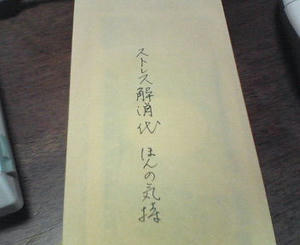 ストレス解消代 ほんの気持